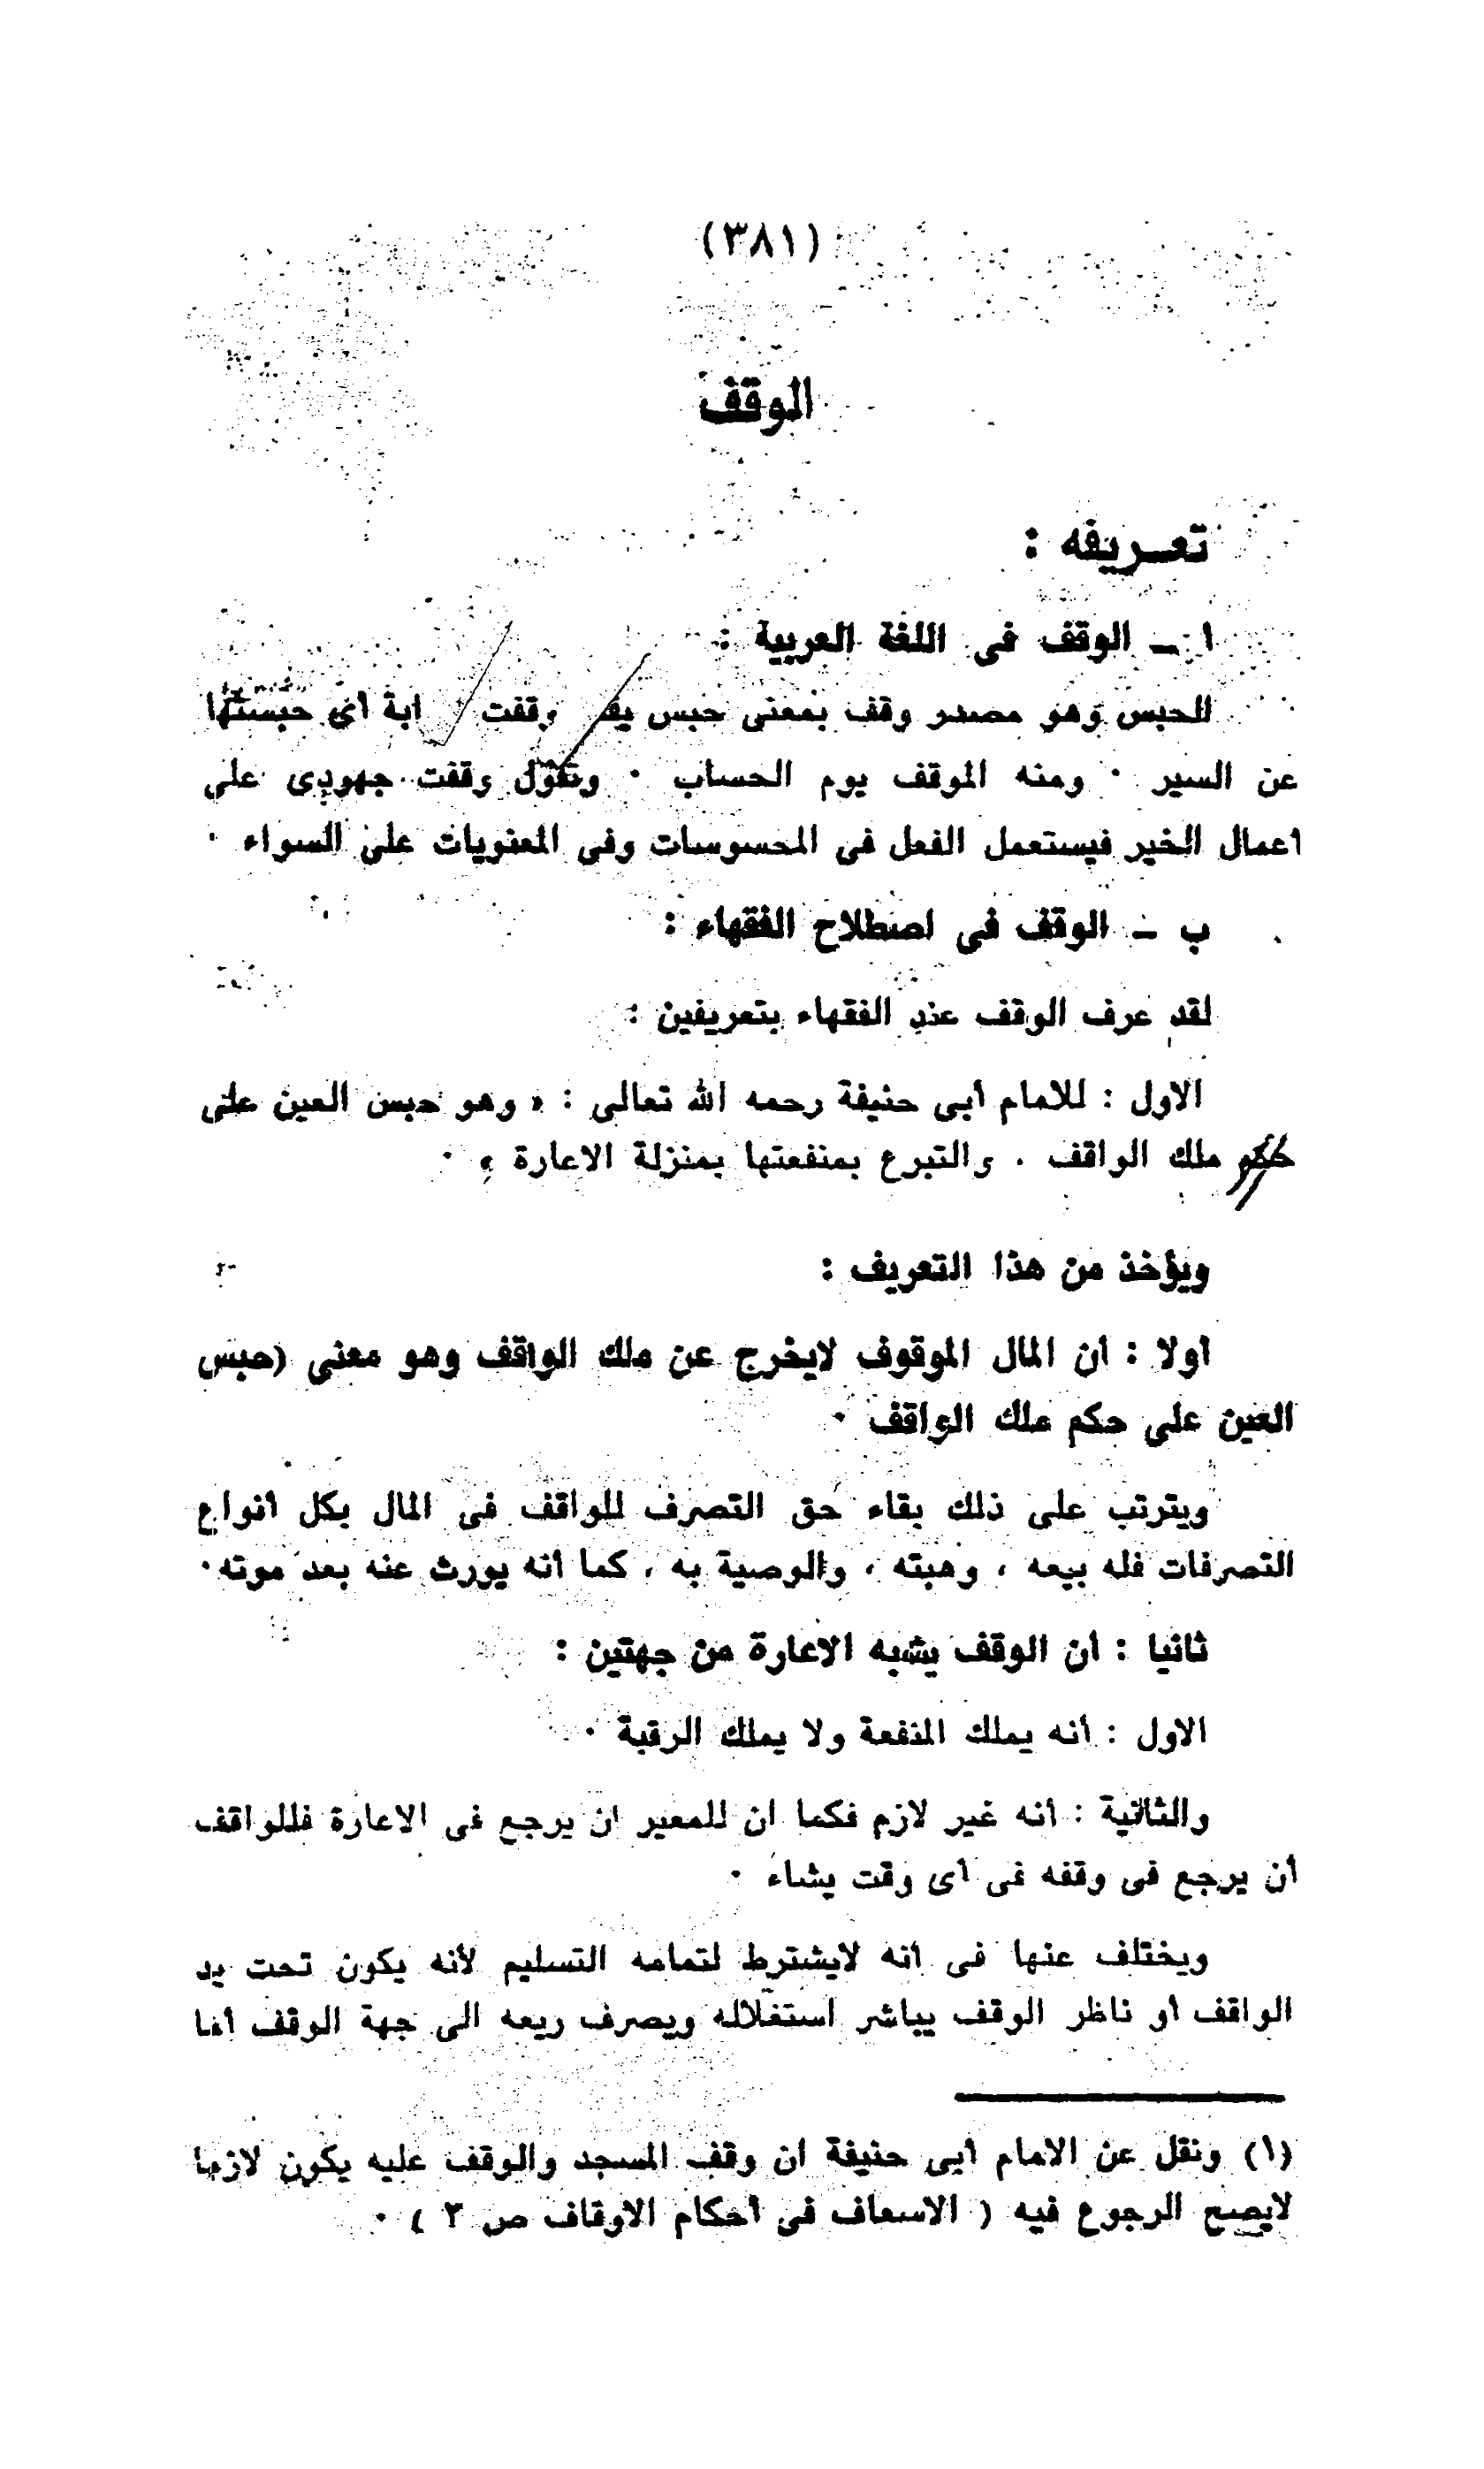 (٣٨١)
الوقف
تعـريفه :
ا ـ الوقف فى اللغة العربية :
الحبس وهو مصدر وقف بمعنى حبس وقفت أى حبستها
عن السير ٠ ومنه الموقف يوم الحساب ٠ وتقول وقفت جهودى على
اعمال الخير فيستعمل الفعل فى المحسوسات وفى المعنويات على السواء ٠
ب ـ الوقف فى اصطلاح الفقهاء :
لقد عرف الوقف عند الفقهاء بتعريفين :
الاول : للامام أبى حنيفة رحمه الله تعالى : « وهو حبس العين على
حكم ملك الواقف . والتبرع بمنفعتها بمنزلة الاعارة » ٠
ويؤخذ من هذا التعريف :
أولا : ان المال الموقوف لايخرج عن ملك الواقف وهو معنى (حبس
العين على حكم ملك الواقف ٠
ويترتب على ذلك بقاء حق التصرف للواقف فى المال بكل أنواع
التصرفات فله بيعه ، وهبته ، والوصية به ، كما أنه يورث عنه بعد موته ٠
ثانيا : ان الوقف يشبه الاعارة من جهتين :
الاول : أنه يملك المنفعة ولا يملك الرقبة ٠
والثانية : أنه غير لازم فكما ان للمعير ان يرجع فى الاعارة فللواقف
أن يرجع فى وقفه فى أى وقت يشاء ٠
ويختلف عنها فى أنه لايشترط لتمامه التسليم لأنه يكون تحت يد
الواقف أو ناظر الوقف يباشر استغلاله ويصرف ريعه الى جهة الوقف أما
(١) ونقل عن الامام أبى حنيفة ان وقف المسجد والوقف عليه يكون لازما
لايصح الرجوع فيه ( الاسعاف فى أحكام الاوقاف ص ٣ ) ٠